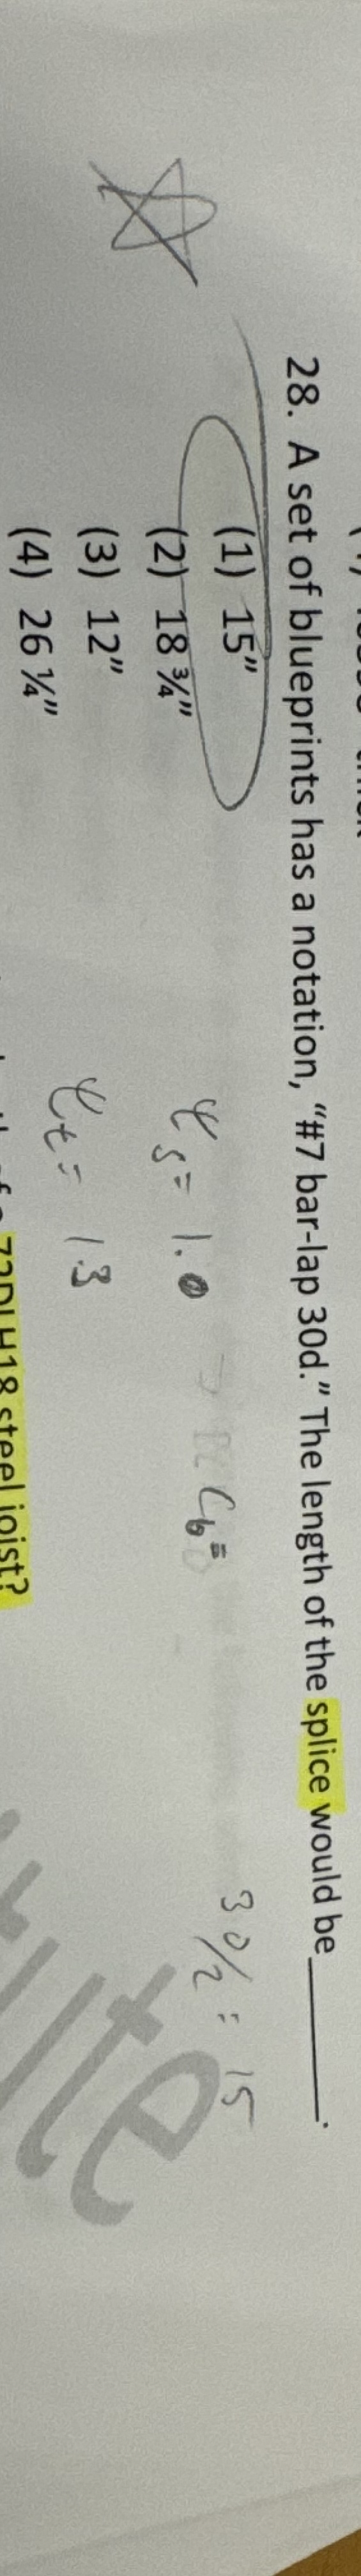 28. A set of blueprints has a notation, “#7 bar-lap 30d.” The length of the splice would be________.
(1) 15”
(2) 18 ¾”
(3) 12”
(4) 26 ¼”
30/2 = 15
Ψs = 1.0
Cb =
Ψt = 1.3
72DLH18 steel joist?